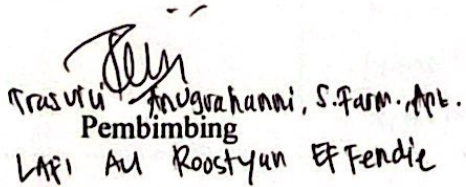 Trasvti Anugrahanni, S.Farm., Apt.
Pembimbing
LAFI AU Roostyan Effendie